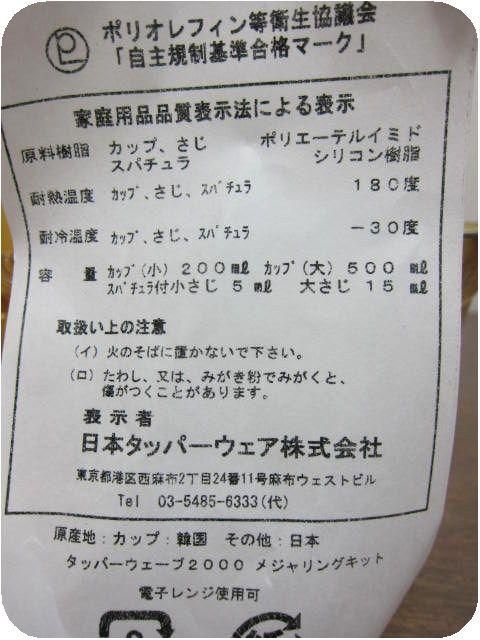 ポリオレフィン等衛生協議会
「自主規制基準合格マーク」
家庭用品品質表示法による表示
原料樹脂 カップ、さじ ポリエーテルイミド
スパチュラ シリコン樹脂
耐熱温度 カップ、さじ、スパチュラ 180度
耐冷温度 カップ、さじ、スパチュラ −30度
容量 カップ(小)200ml カップ(大)500ml
スパチュラ付小さじ 5ml 大さじ 15ml
取扱い上の注意
(イ)火のそばに置かないで下さい。
(ロ)たわし、又は、みがき粉でみがくと、
傷がつくことがあります。
表示者
日本タッパーウェア株式会社
東京都港区西麻布2丁目24番11号麻布ウェストビル
Tel 03-5485-6333(代)
原産地:カップ:韓国 その他:日本
タッパーウェーブ2000 メジャリングキット
電子レンジ使用可